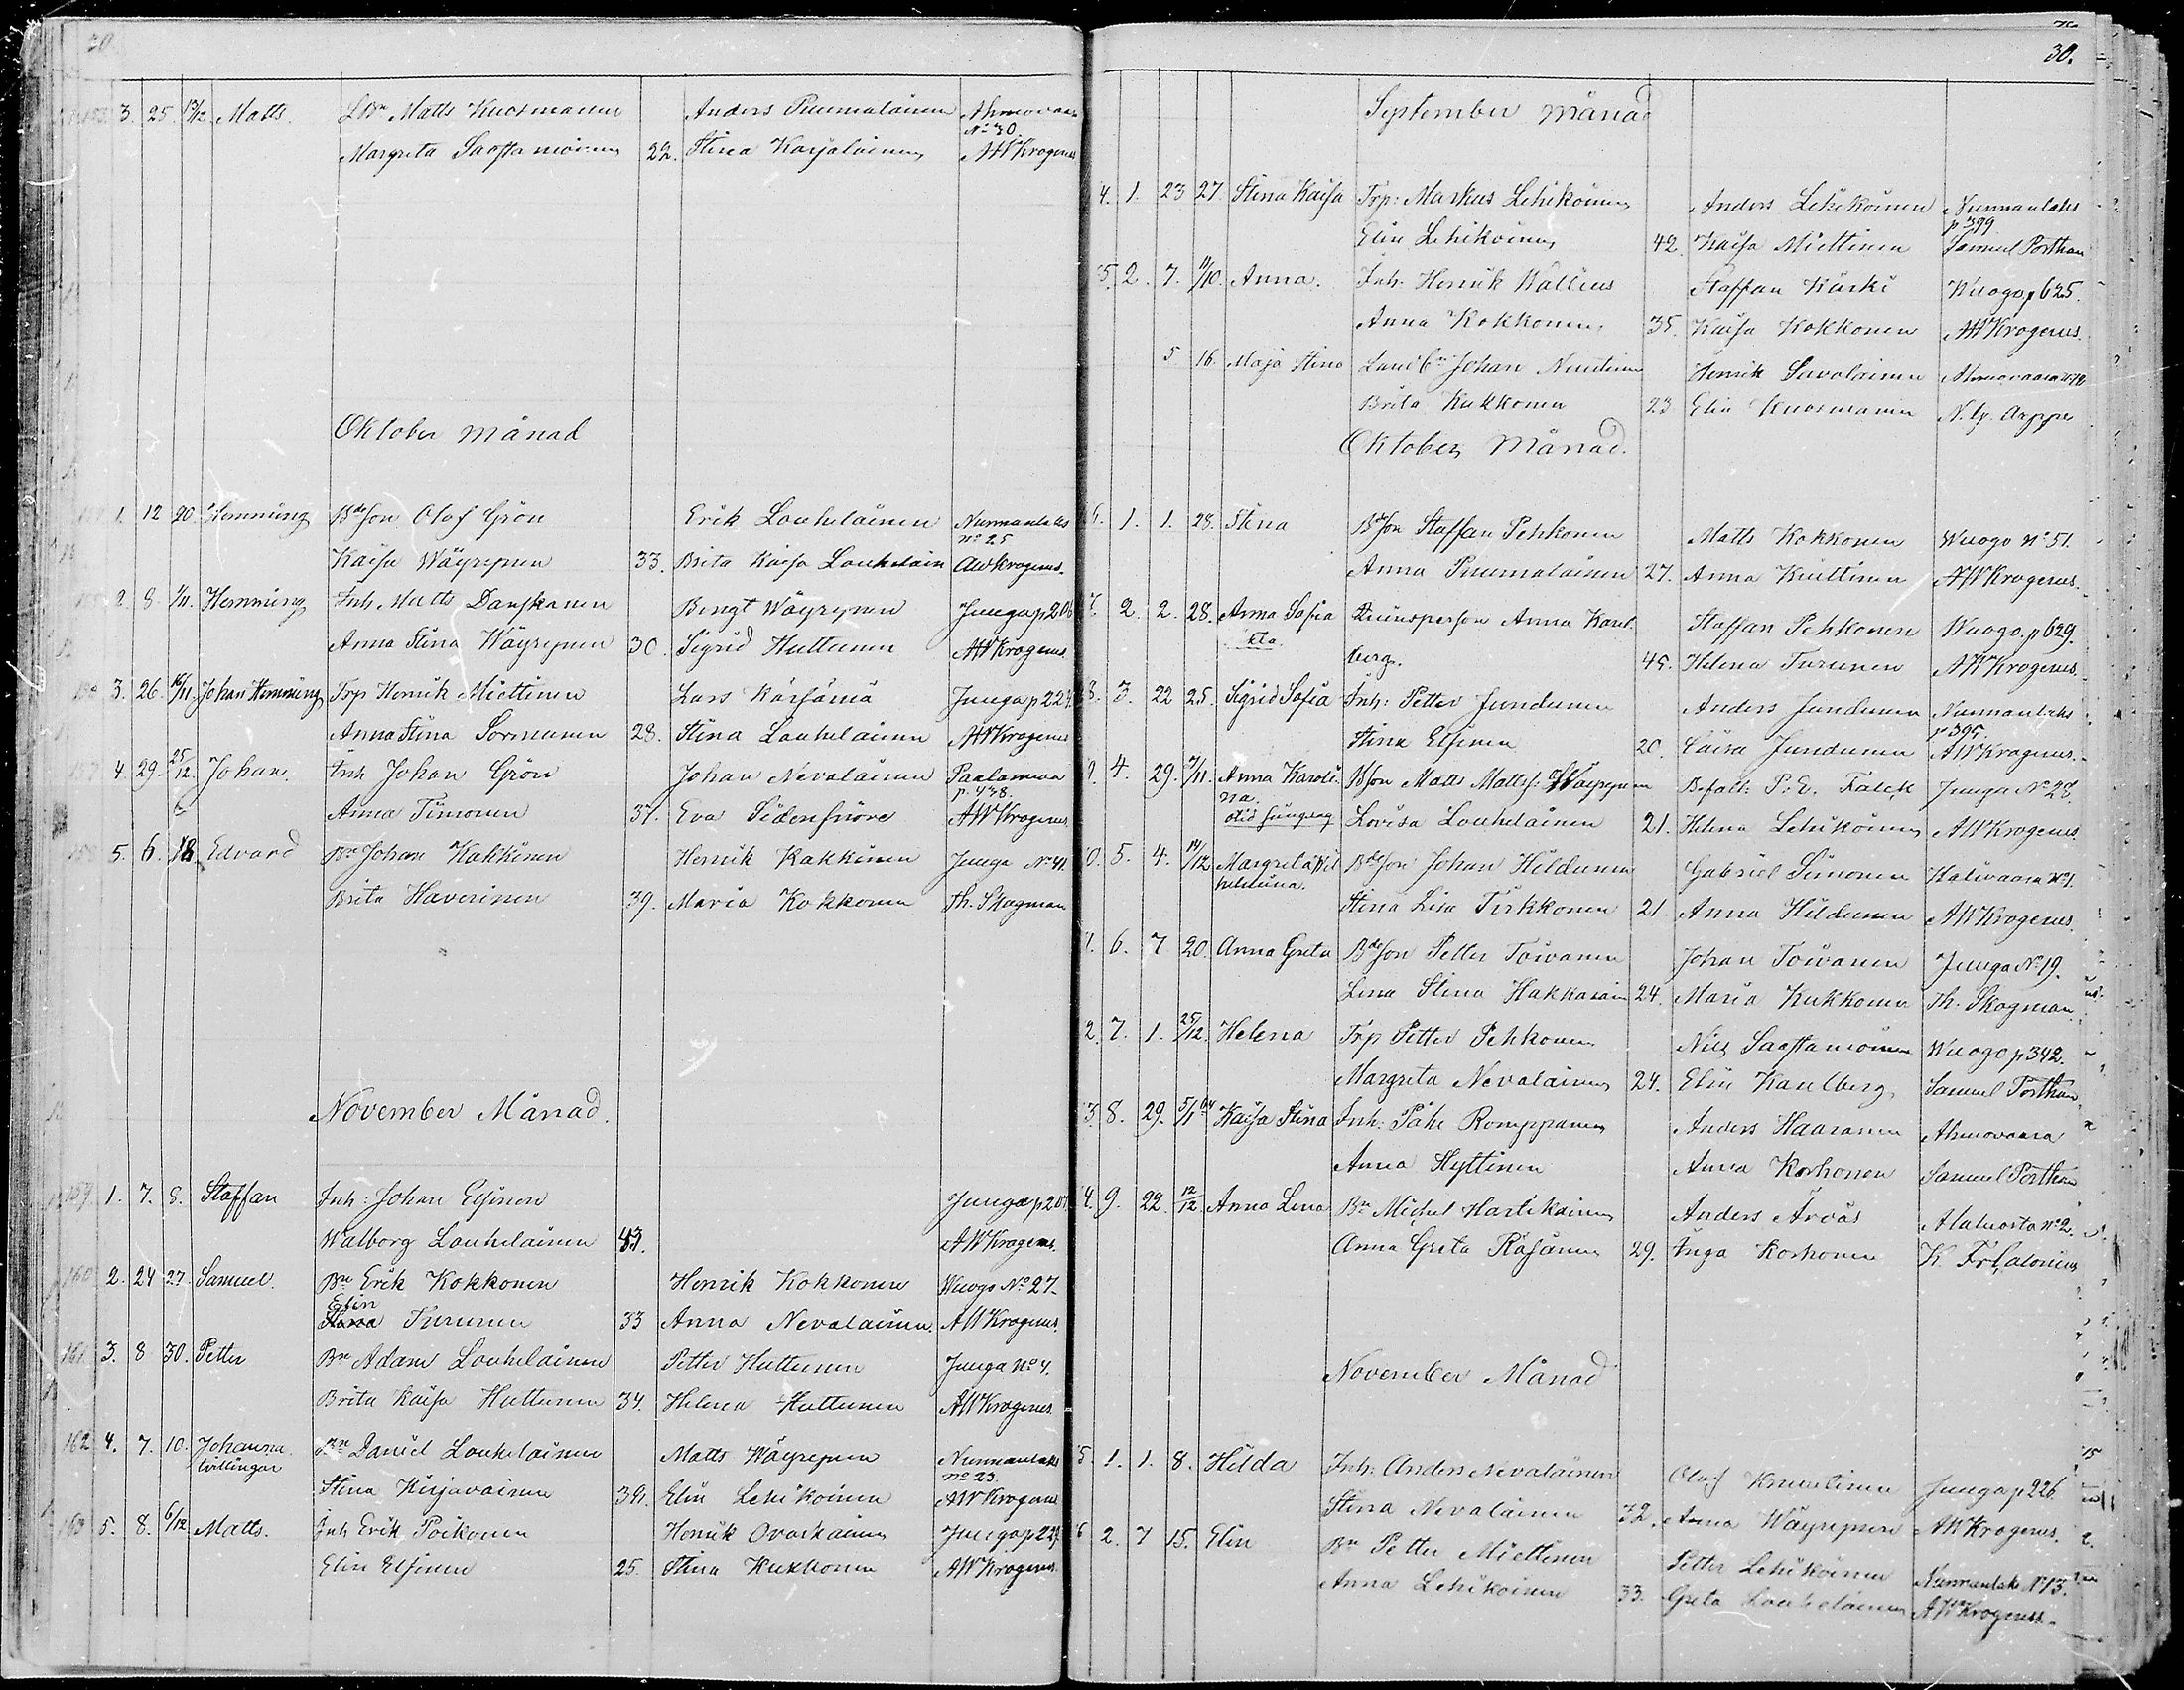 30.
3. 25. 13/12 Matts. LBn Matts Kuosmanen Anders Puumalainen Ahmovaara
No 30.
Margreta Saastamoinen 22. Stina Karjalainen AWKrogerus
Oktober Månad
1. 12 20. Hemming BdeSon Olof Grön Erik Louhelainen Nurmanlaks
no 25
Kaisa Wäyrynen 33. Brita Kaisa Louhelain AWKrogerus.
2. 8. 1/11. Hemming Inh. Matts Danskanen Bengt Wäyrynen Juuga p 206
Anna Stina Wäyrynen 30. Sigrid Huttunen AWKrogerus.
3. 26. 16/11. Johan Hemming Trp Henrik Miettinen Lars Kärsämä Juuga p 224.
Anna Stina Sormunen 28. Stina Louhelainen AWKrogerus
4. 29. 25/12. Johan. Inh Johan Grön Johan Nevalainen Paalamaa
p. 438.
Anna Timonen 37. Eva Sidensnöre AWKrogerus.
5. 6. 18. Edvard Bn Johan Kakkinen Henrik Kakkinen Juuga No 41.
Brita Haverinen 39. Maria Kokkonen Th. Skogman
November Månad.
159 1. 7. 8. Staffan Inh: Johan Elfinen Juuga p 207
Walborg Louhelainen 43. AWKrogerus.
160 2. 24 27. Samuel. Bn Erik Kokkonen Henrik Kokkonen Wuogo No 27.
Elin
Turunen 33 Anna Nevalainen. AWKrogerus.
161. 3. 8 30. Petter Bn Adam Louhelainen Petter Huttunen Juuga no 4.
Brita Kaisa Huttunen 34. Helena Huttunen AWKrogerus.
162 4. 7. 10. Johanna Bn Daniel Louhelainen Matts Wäyrynen Nurmanlaks
tvillingar no 23.
Stina Kirjavainen 39. Elin Lehikoinen AWKrogerus
163 5. 8. 6/12. Matts. Inh Erik Poikonen Henrik Ovaskainen Juuga p 229.
Elin Elfinen 25. Stina Kukkonen AWKrogerus.
30.
September Månad
4. 1. 23 27. Stina Kaisa Trp: Markus Lehikoinen Anders Lehikoinen Nurmanlaks
p 399
Elin Lehikoinen 42. Kaisa Miettinen Samuel Porthan
5. 2. 7. 11/10. Anna. Inh. Henrik Wallius Staffan Kärki Wuogo p 625.
Anna Kokkonen 35. Kaisa Kokkonen AWKrogerus.
5 16. Maja Stina LandBn Johan Nuutinen Henrik Savolainen Ahmovaara
Brita Kukkonen 23 Elin Kuosmanen N. G. Arppe
Oktober Månad.
6. 1. 1. 28. Stina BdeSon Staffan Pehkonen Matts Kokkonen Wuogo No 51.
Anna Puumalainen 27. Anna Kuittinen AWKrogerus.
7. 2. 2. 28. Anna Sofia Qvinsperson Anna Karl- Staffan Pehkonen Wuogo. p 629.
oä.
berg. 45. Helena Turunen AWKrogerus.
8. 3. 22 25. Sigrid Sofia Inh: Petter Jundunen Anders Jundunen Nurmanlaks
p 395.
Stina Elfinen 20. Caisa Jundunen AWKrogerus.
9. 4. 29. Anna Karoli- BSon Matts Mattss: Wäyrynen Befallt: P. E. Falck Juuga No 28.
na.
Lovisa Louhelainen 21. Helena Lehikoinen AWKrogerus.
0. 5. 4. 14/12 Margreta Wil- BdeSon Johan Hildunen Gabriel Simonen Halivaara No 1.
helmina.
Stina Lisa Tirkkonen 21. Anna Hildunen AWKrogerus.
1. 6. 7 20. Anna Greta BdeSon Petter Toivanen Johan Toivanen Juuga No 19.
Lena Stina Hakkarain 24. Maria Kukkonen Th: Skogman.
2. 7. 1. 25/12. Helena Trp Petter Pehkonen Nils Saastamoinen Wuogo p 342.
Margreta Nevalainen 24. Elin Karlberg Samuel Porthan
3. 8. 29. 5/1 64 Kaisa Stina Inh: Påhl Romppanen Anders Haaranen Ahmovaara
Anna Hyttinen Anna Korhonen Samuel Porthan
4. 9. 22. 12/12 Anna Lena Bn Michel Hartikainen Anders Arväs Alaluosta no 2.
Anna Greta Räsänen 29. Inga Korhonen K. Fr. Calonius
November Månad
5. 1. 1. 8. Hilda Inh: Anders Nevalainen Olof Knuutinen Juuga p 226.
Stina Nevalainen 32. Anna Wäyrynen AWKrogerus.
6 2. 7 15. Elin Bn Petter Miettinen Petter Lehikoinen Nurmanlaks No 13.
Anna Lehikoinen 33. Greta Louhelainen AWKrogerus.